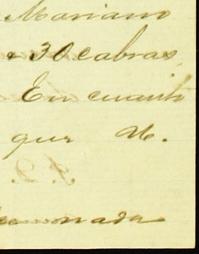 Mariano
30 cabras,
En cuanto
que U.